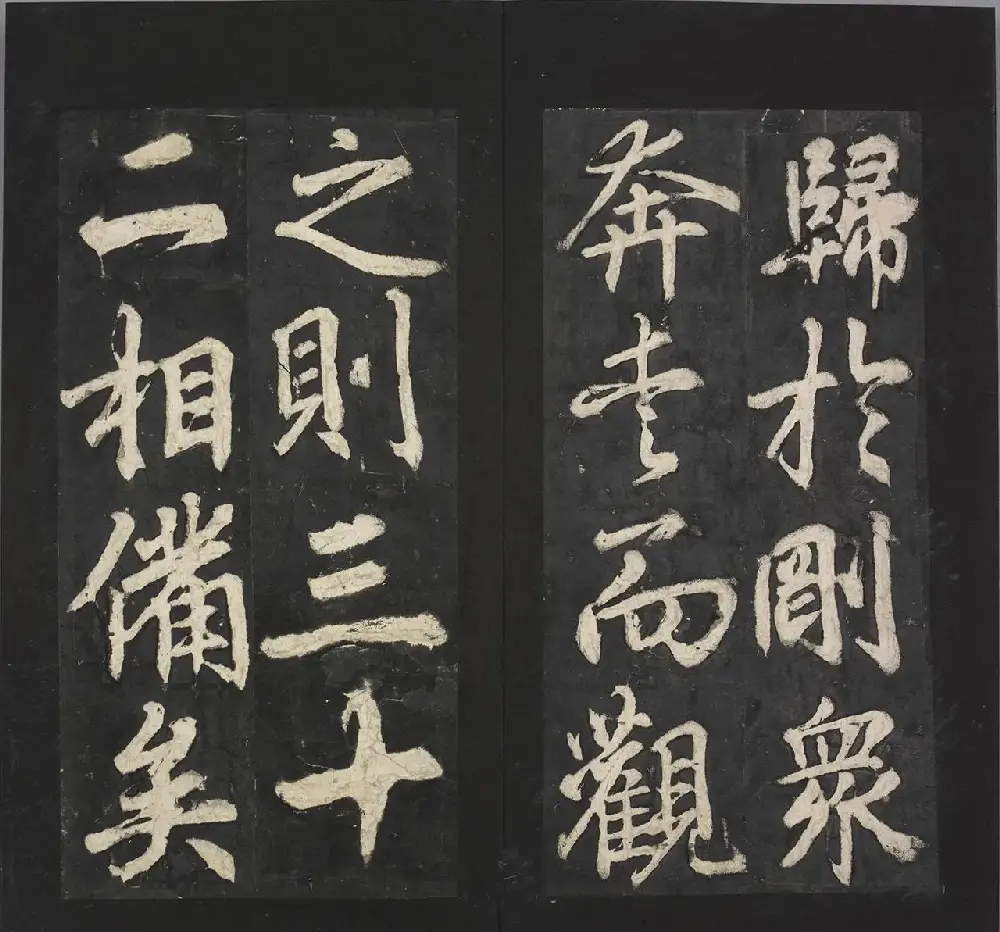 歸於剛眾
奔走而觀
之則三十
二相備矣